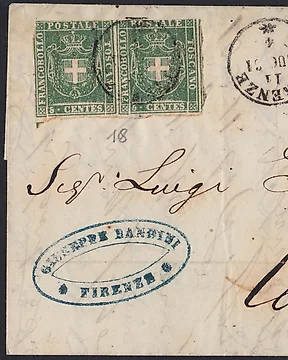 FRANCOBOLLO POSTALE TOSCANO
5 CENTES
FRANCOBOLLO POSTALE TOSCANO
5 CENTES
4
61
11
18
Luigi
GIUSEPPE BANDINI
FIRENZE